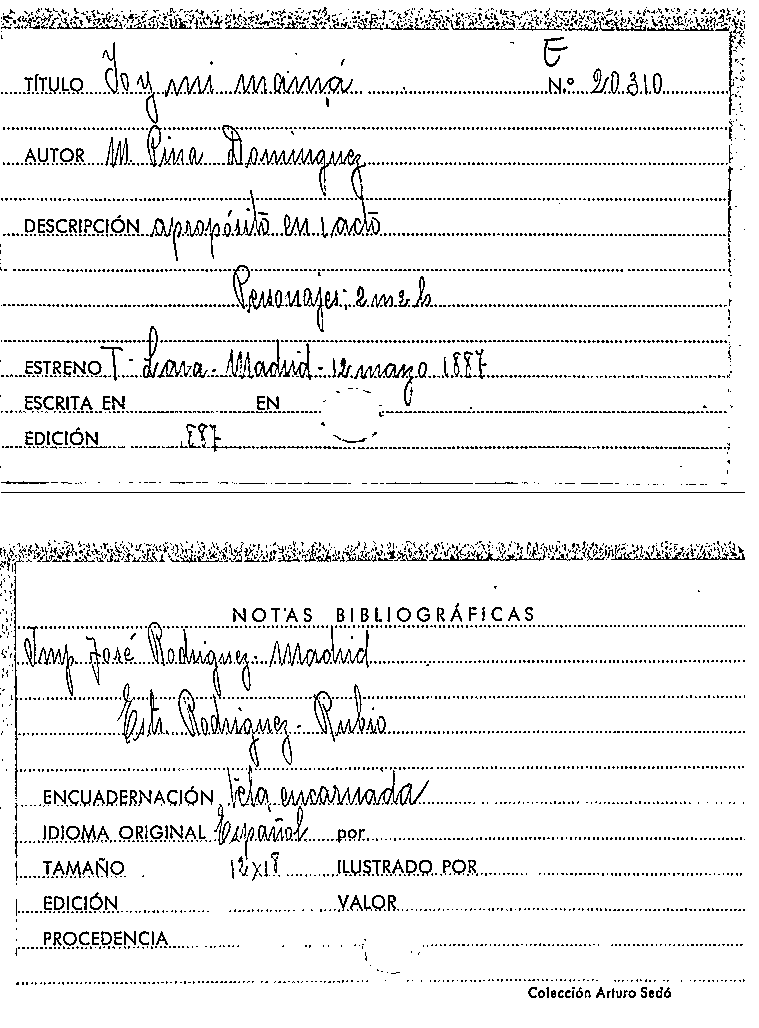 E
TÍTULO Yo y mi mamá N.º 20310
AUTOR M. Pina Domínguez
DESCRIPCIÓN apropósito en 1 acto
Personajes: 2 m 2 h
ESTRENO T- Lara - Madrid - 12 mayo 1887
ESCRITA EN EN
EDICIÓN 887
NOTAS BIBLIOGRÁFICAS
Imp José Rodriguez - Madrid
Estr. Rodriguez - Rubio
ENCUADERNACIÓN tela encarnada
IDIOMA ORIGINAL Español por
TAMAÑO 12x18 ILUSTRADO POR
EDICIÓN VALOR
PROCEDENCIA
Colección Arturo Sedó